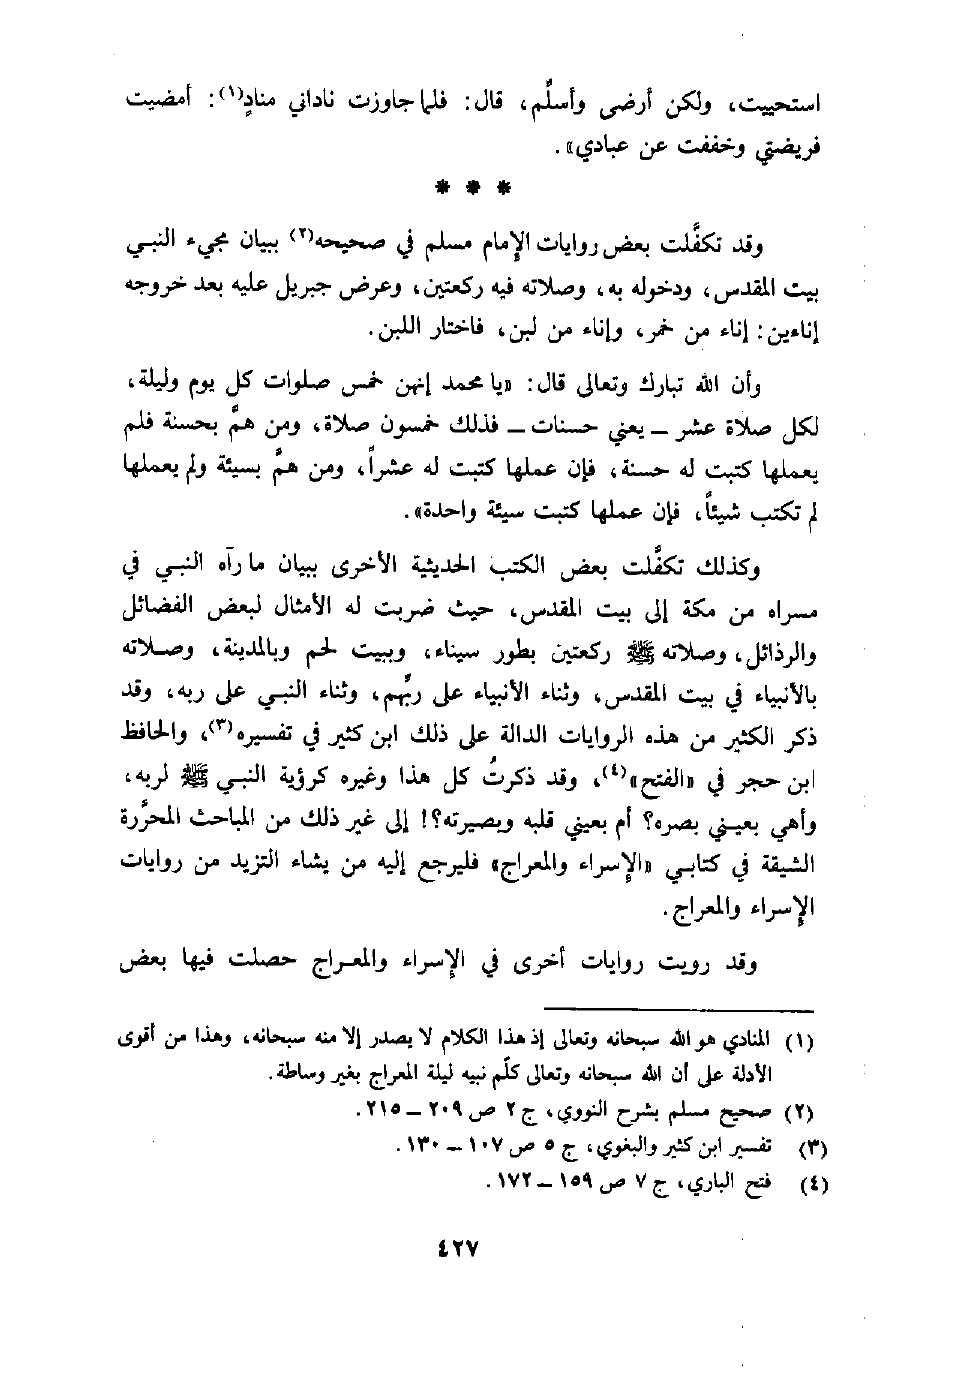 استحييت، ولكن أرضى وأسلِّم، قال: فلما جاوزت ناداني منادٍ(١): أمضيت
فريضتي وخففت عن عبادي».
* * *
وقد تكفَّلت بعض روايات الإمام مسلم في صحيحه(٢) ببيان مجيء النبي
بيت المقدس، ودخوله به، وصلاته فيه ركعتين، وعرض جبريل عليه بعد خروجه
إناءين: إناء من خمر، وإناء من لبن، فاختار اللبن.
وأن الله تبارك وتعالى قال: «يا محمد إنهن خمس صلوات كل يوم وليلة،
لكل صلاة عشر ــ يعني حسنات ــ فذلك خمسون صلاة، ومن همَّ بحسنة فلم
يعملها كتبت له حسنة، فإن عملها كتبت له عشراً، ومن همَّ بسيئة ولم يعملها
لم تكتب شيئاً، فإن عملها كتبت سيئة واحدة».
وكذلك تكفَّلت بعض الكتب الحديثية الأخرى ببيان ما رآه النبي في
مسراه من مكة إلى بيت المقدس، حيث ضربت له الأمثال لبعض الفضائل
والرذائل، وصلاته ﷺ ركعتين بطور سيناء، وببيت لحم وبالمدينة، وصلاته
بالأنبياء في بيت المقدس، وثناء الأنبياء على ربِّهم، وثناء النبي على ربه، وقد
ذكر الكثير من هذه الروايات الدالة على ذلك ابن كثير في تفسيره(٣)، والحافظ
ابن حجر في «الفتح»(٤)، وقد ذكرتُ كل هذا وغيره كرؤية النبي ﷺ لربه،
وأهي بعيني بصره؟ أم بعيني قلبه وبصيرته؟! إلى غير ذلك من المباحث المحرَّرة
الشيقة في كتابي «الإسراء والمعراج» فليرجع إليه من يشاء التزيد من روايات
الإسراء والمعراج.
وقد رويت روايات أخرى في الإسراء والمعراج حصلت فيها بعض
(١) المنادي هو الله سبحانه وتعالى إذ هذا الكلام لا يصدر إلا منه سبحانه، وهذا من أقوى
الأدلة على أن الله سبحانه وتعالى كلّم نبيه ليلة المعراج بغير وساطة.
(٢) صحيح مسلم بشرح النووي، ج ٢ ص ٢٠٩ ــ ٢١٥.
(٣) تفسير ابن كثير والبغوي، ج ٥ ص ١٠٧ ــ ١٣٠.
(٤) فتح الباري، ج ٧ ص ١٥٩ ــ ١٧٢.
٤٢٧